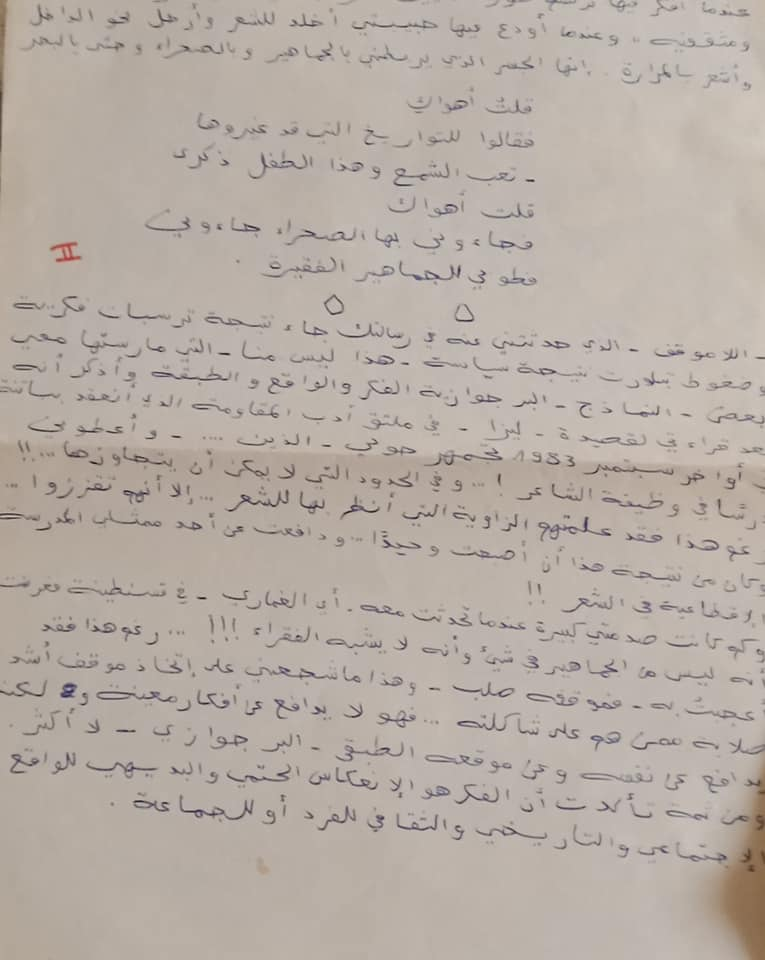 عندما أفكر فيها
ومثقفيه .. وعندما أودع فيها حبيبتي أخلد للشعر وأرحل نحو الداخل
وأشعر بالمرارة . إنها الجسر الذي يربطني بالجماهير وبالصحراء وحتى بالبحر
قلت أهواك
فقالوا للتواريخ التي قد غيروها
ـ تعب الشمع وهذا الطفل ذكرى
قلت أهواك
فجاءوني بها الصحراء جاءوني
فطوبى للجماهير الفقيرة .
II
ـ اللاموقف ـ الذي حدثتني عنه في رسالتك جاء نتيجة ترسبات فكرية
وضغوط تبلورت نتيجة سياسة ـ هذا ليس منا ـ التي مارستها معي
بعض ـ النماذج ـ البرجوازية الفكر والواقع والطبقة وأذكر أنه
بعد قراءتي لقصيدة ـ ليزا ـ في ملتقى أدب المقاومة الذي أنعقد بباتنة
في أواخر سبتمبر 1983 تجمهر حولي ـ الذين .... ـ وأعطوني
درسًا في وظيفة الشاعر !... وفي الحدود التي لا يمكن أن يتجاوزها ...!!
رغم هذا فقد علمتهم الزاوية التي أنظر بها للشعر ... إلا أنهم تقززوا ...
وكان من نتيجة هذا أن أصبحت وحيدًا ... ودافعت عن أحد ممثلي المدرسة
الإقطاعية في الشعر !!
وكم كانت صدمتي كبيرة عندما تحدثت معه . أي الغماري ـ في قسنطينة فعرفت
أنه ليس من الجماهير في شيئ وأنه لا يشبه الفقراء !!! ... رغم هذا فقد
أعجبت به ـ فموقفه صلب ـ وهذا ما شجعني على إتخاذ موقف أشد
صلابة ممن هو على شاكلته ... فهو لا يدافع عن أفكار معينة و لكنه
يدافع عن نفسه وعن موقعه الطبقي ـ البرجوازي ـ لا أكثر .
ومن ثمة تأكدت أن الفكر هو الإنعكاس الحتمي والبديهي للواقع
الإجتماعي والتاريخي والثقافي للفرد أو للجماعة .